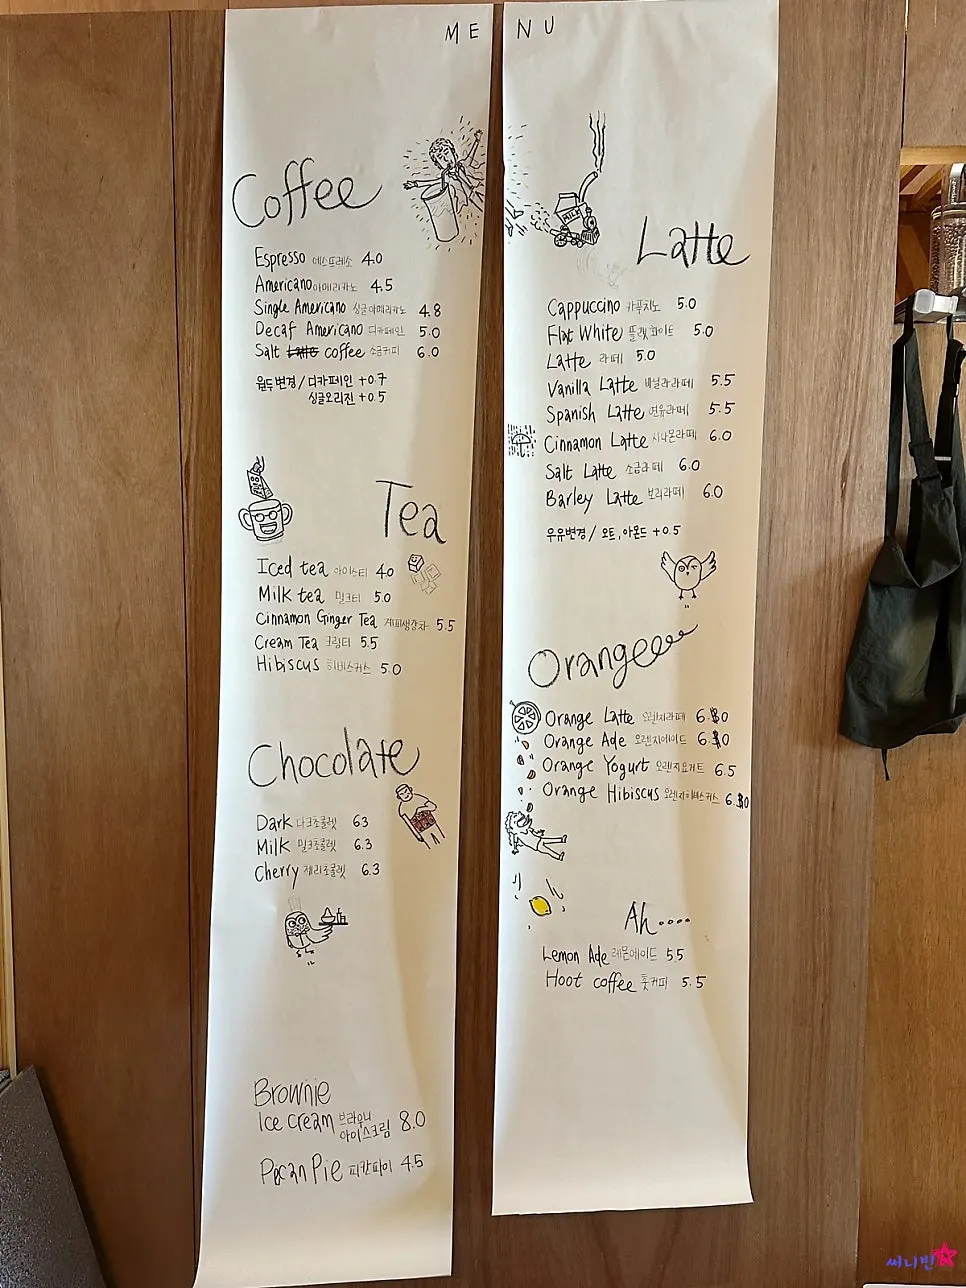 MENU
Coffee
Espresso 에스프레소 4.0
Americano 아메리카노 4.5
Single Americano 싱글아메리카노 4.8
Decaf Americano 디카페인 5.0
Salt Latte coffee 소금커피 6.0
원두변경/디카페인 +0.7
싱글오리진 +0.5
Tea
Iced tea 아이스티 4.0
Milk tea 밀크티 5.0
Cinnamon Ginger Tea 계피생강차 5.5
Cream Tea 크림티 5.5
Hibiscus 히비스커스 5.0
Chocolate
Dark 다크초콜렛 6.3
Milk 밀크초콜렛 6.3
Cherry 체리초콜렛 6.3
Brownie
Ice cream 브라우니
아이스크림 8.0
Pecan Pie 피칸파이 4.5
MILK
Latte
Cappuccino 카푸치노 5.0
Flat White 플랫화이트 5.0
Latte 라떼 5.0
Vanilla Latte 바닐라라떼 5.5
Spanish Latte 연유라떼 5.5
Cinnamon Latte 시나몬라떼 6.0
Salt Latte 소금라떼 6.0
Barley Latte 보리라떼 6.0
우유변경/ 오트, 아몬드 +0.5
Orangeeee
Orange Latte 오렌지라떼 6.0
Orange Ade 오렌지에이드 6.0
Orange Yogurt 오렌지요거트 6.5
Orange Hibiscus 오렌지히비스커스 6.0
Ah....
Lemon Ade 레몬에이드 5.5
Hoot coffee 훗커피 5.5
써니빈